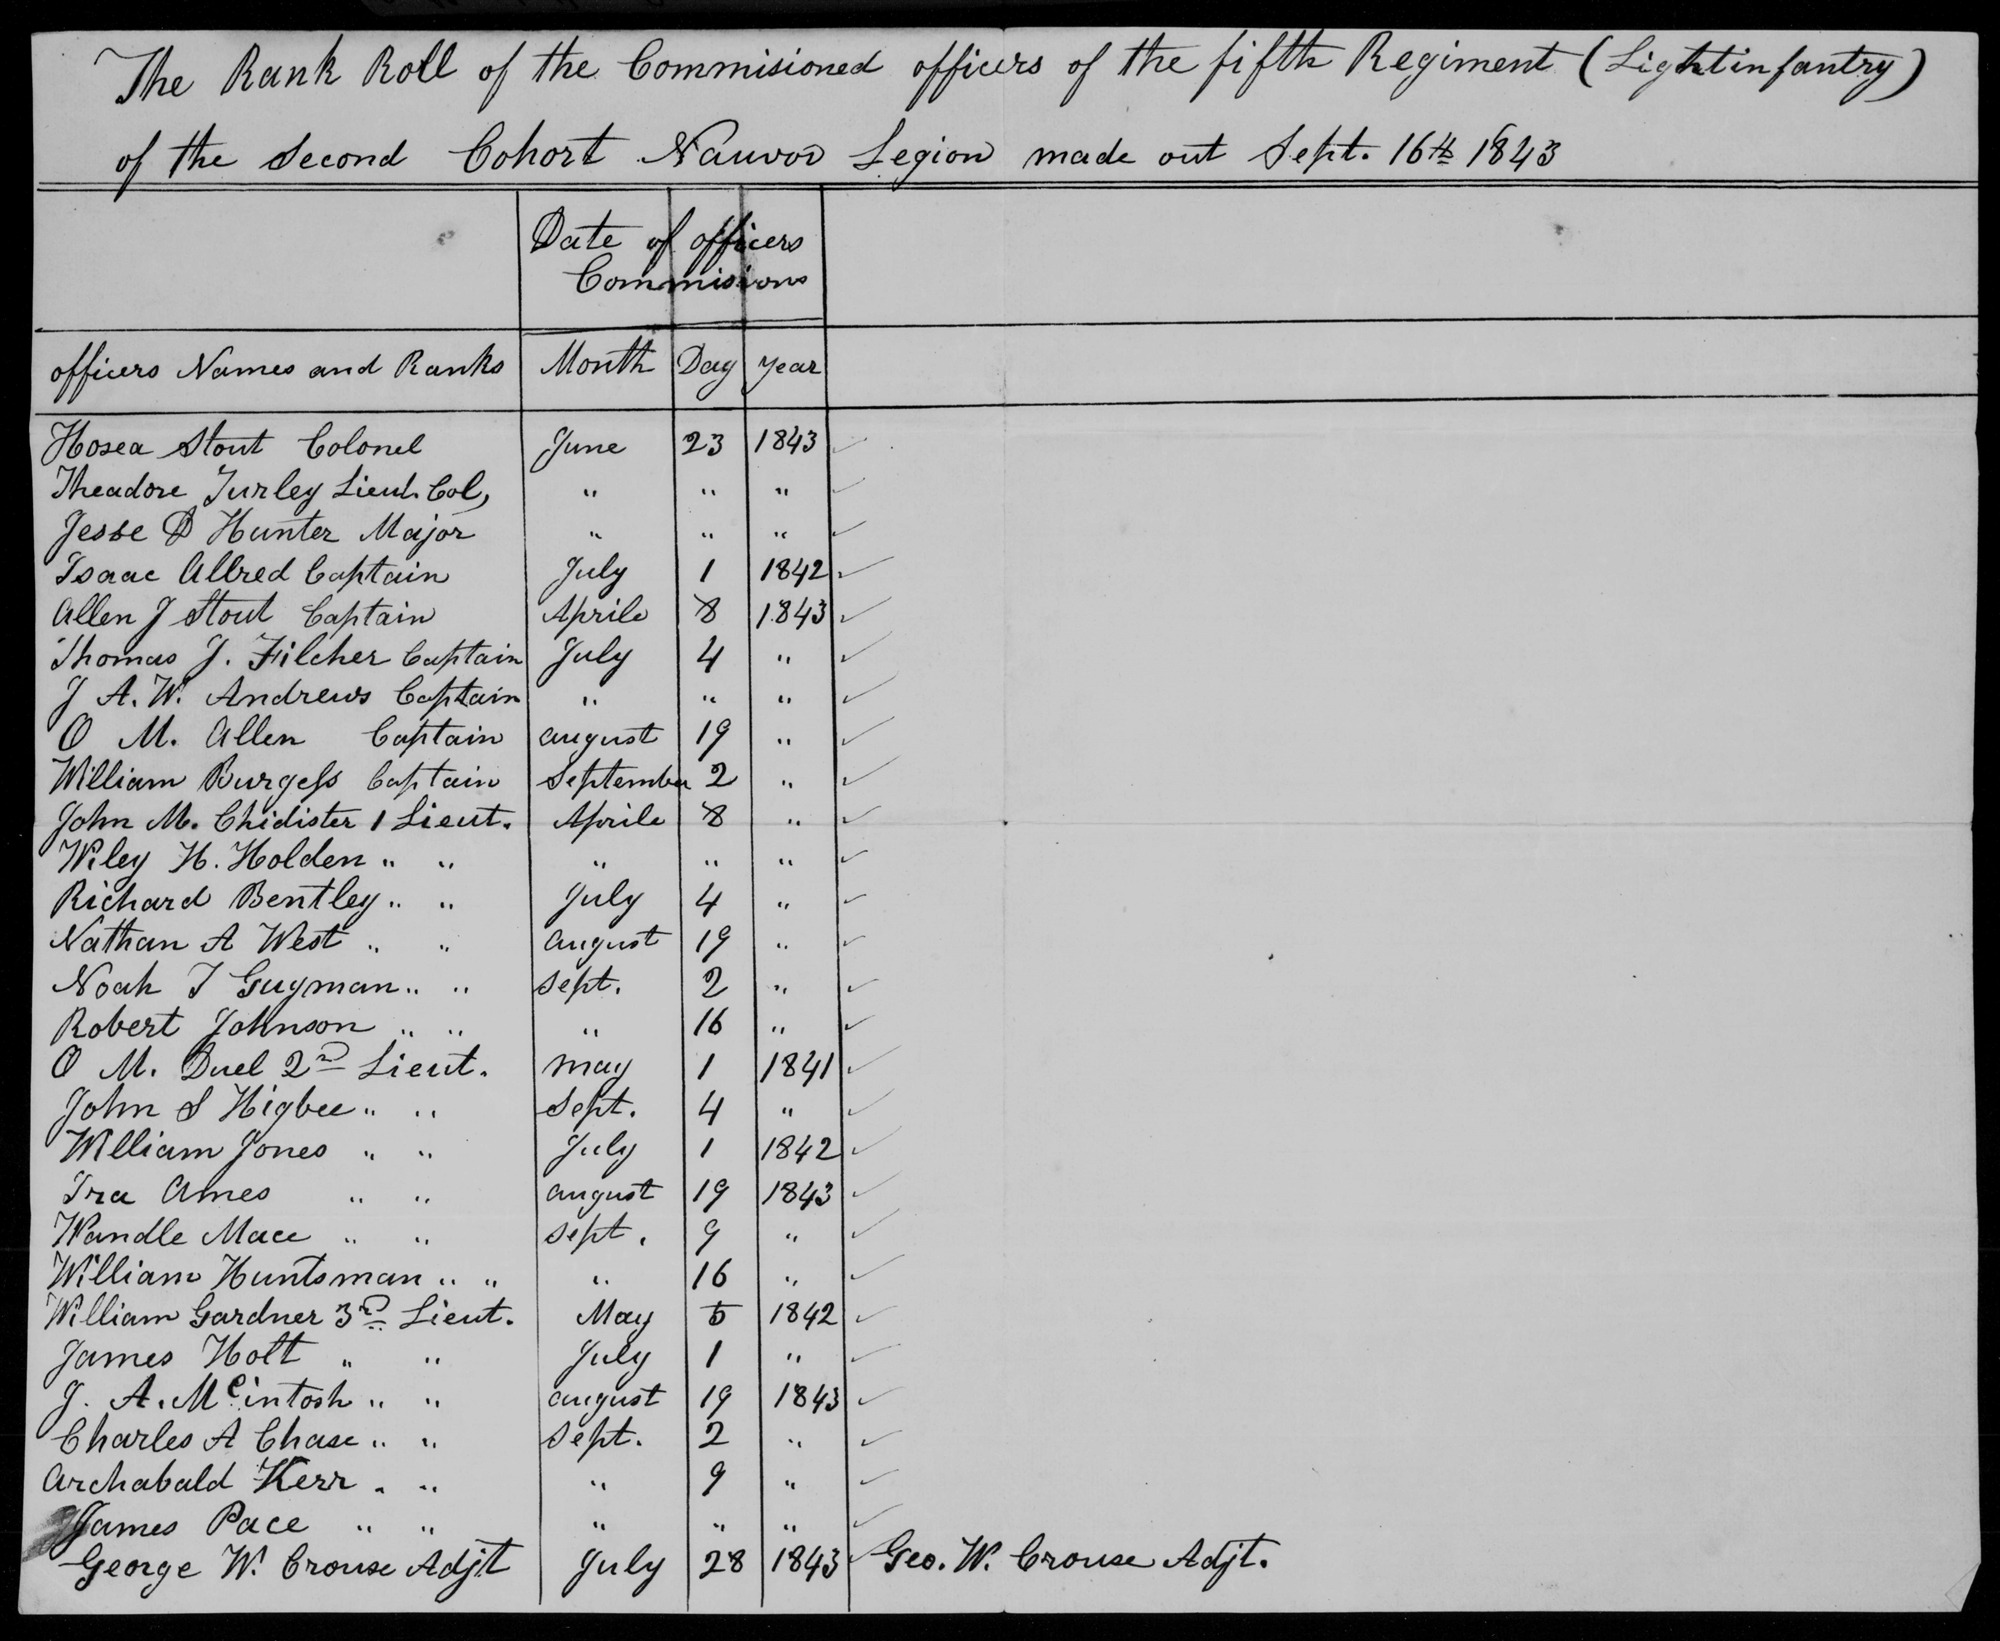 The Rank Roll of the Commisioned officers of the fifth Regiment (Lightinfantry)
of the Second Cohort Nauvoo Legion made out Sept. 16th 1843
Date of officers
Commisions
officers Names and Ranks Month Day Year
Hosea Stout Colonel June 23 1843 ✓
Theadore Turley Lieut. Col, " " " ✓
Jesse D Hunter Major " " " ✓
Isaac Allred Captain July 1 1842 ✓
Allen J Stout Captain Aprile 8 1843 ✓
Thomas J. Filcher Captain July 4 " ✓
J A. W. Andrews Captain " " " ✓
O M. Allen Captain august 19 " ✓
William Burgess Captain September 2 " ✓
John M. Chidister 1 Lieut. Aprile 8 " ✓
Wiley H. Holden " " " " " ✓
Richard Bentley " " July 4 " ✓
Nathan A West " " august 19 " ✓
Noah T Gugman " " Sept. 2 " ✓
Robert Johnson " " " 16 " ✓
O M. Duel 2nd Lieut. may 1 1841 ✓
John S Higbee " " Sept. 4 " ✓
William Jones " " July 1 1842 ✓
Ira Ames " " august 19 1843 ✓
Wandle Mace " " Sept. 9 " ✓
William Huntsman " " " 16 " ✓
William Gardner 3rd Lieut. May 5 1842 ✓
James Holt " " July 1 " ✓
J. A. McIntosh " " august 19 1843 ✓
Charles A Chase " " Sept. 2 " ✓
Archabald Kerr " " " 9 " ✓
James Pace " " " " " ✓
George W. Crouse Adjt July 28 1843 ✓ Geo. W. Crouse Adjt.